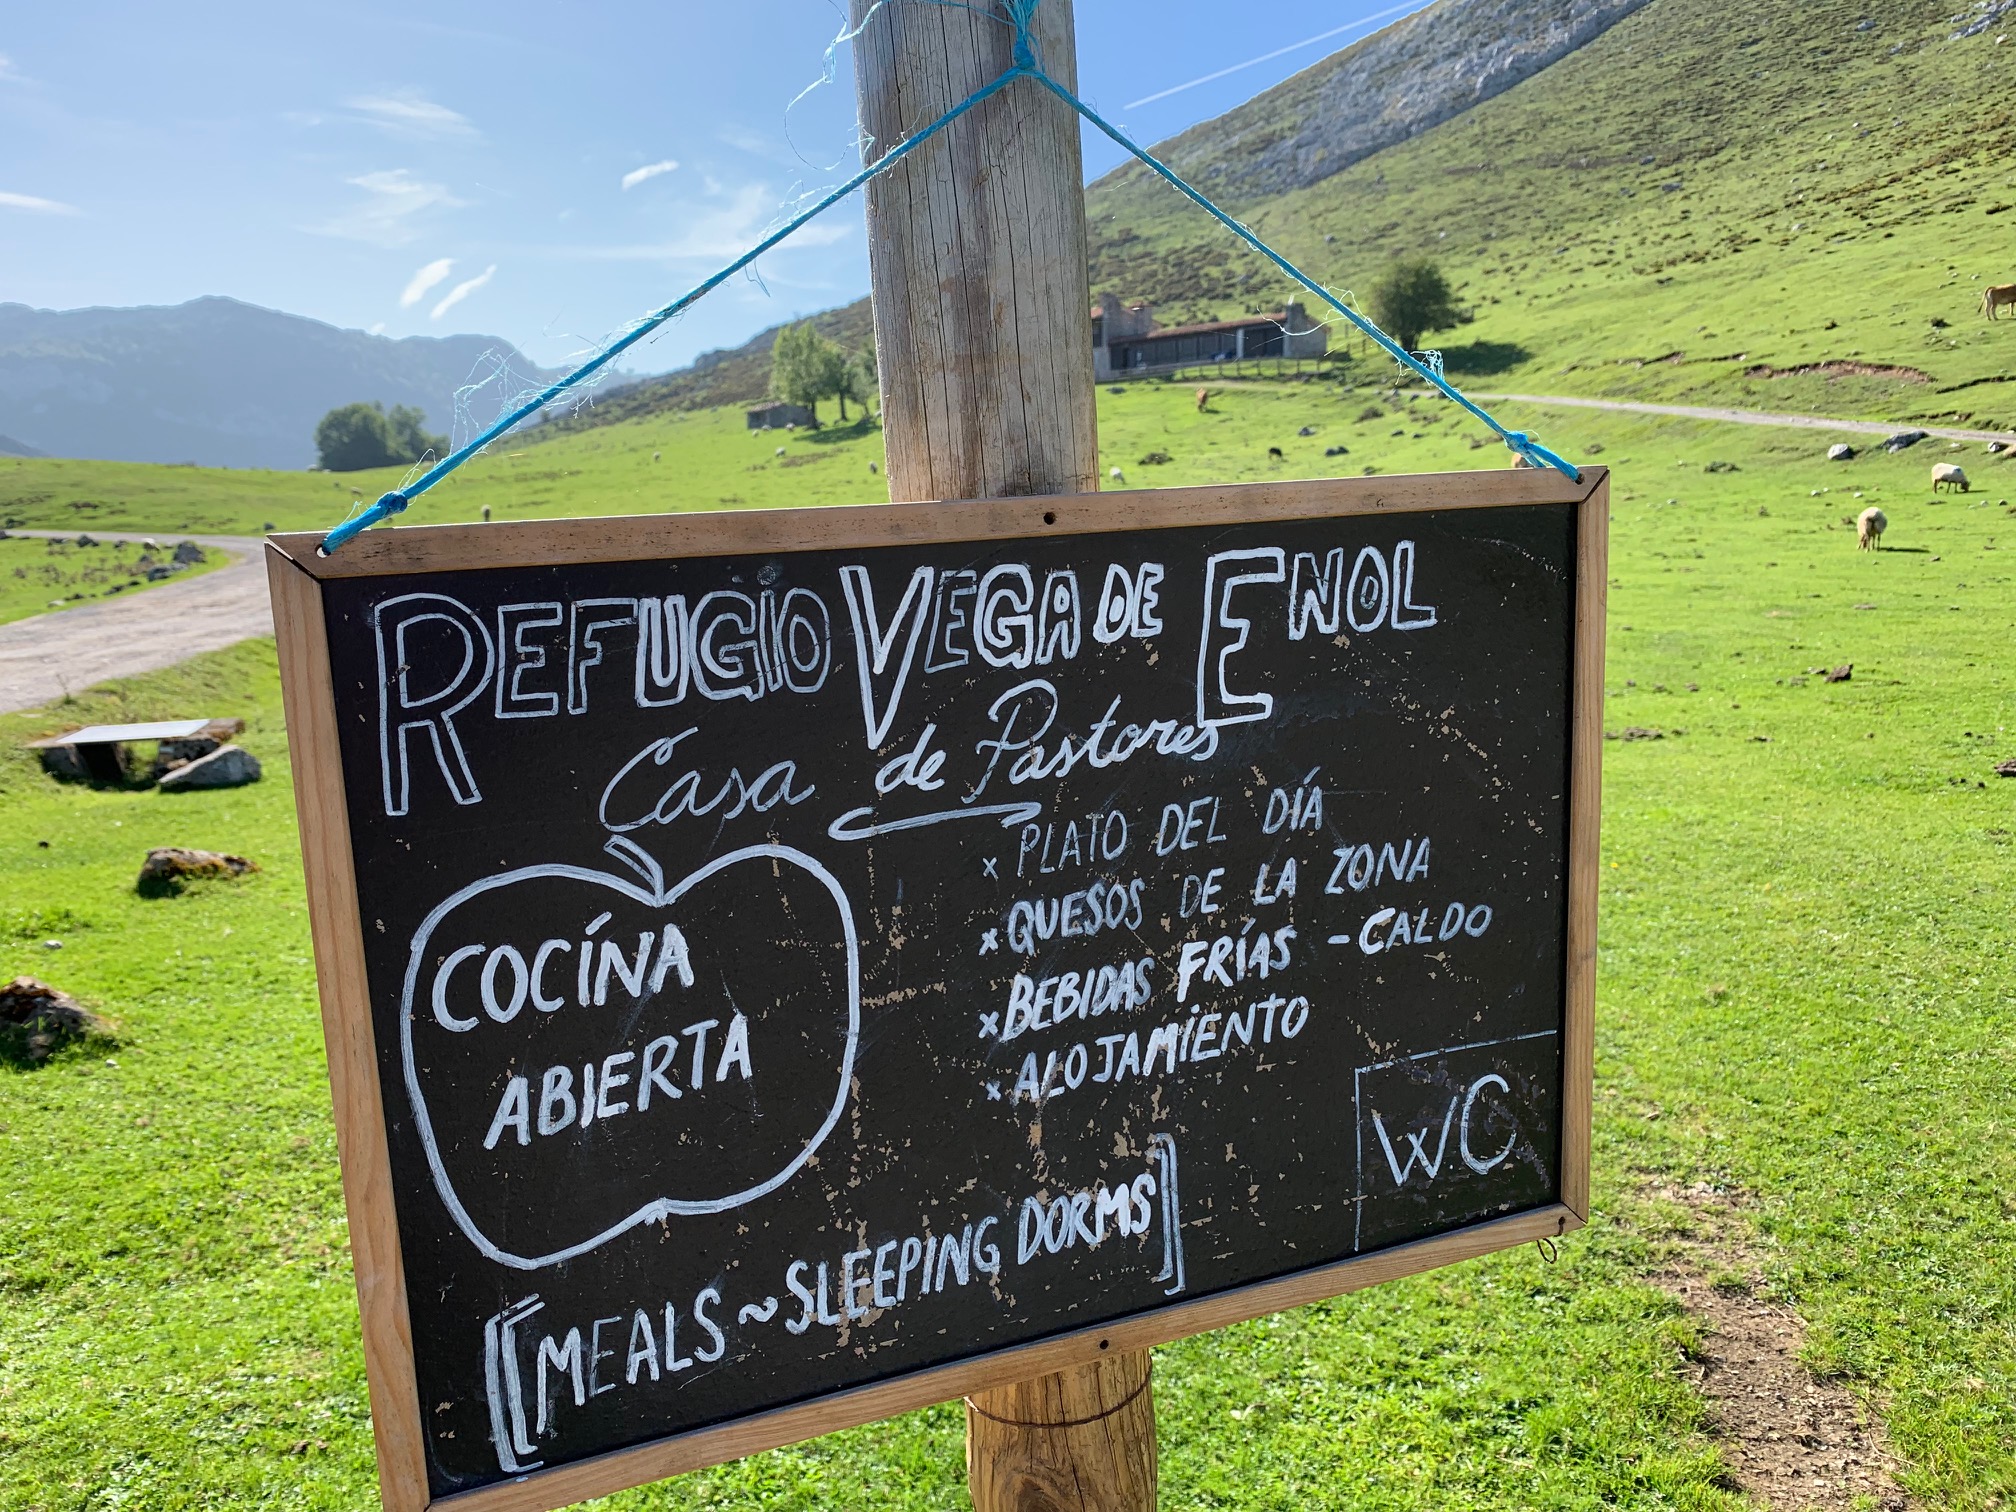 REFUGiO VEGA DE ENOL
Casa de Pastores
COCÍNA
ABIERTA
x PLATO DEL DÍA
x QUESOS DE LA ZONA
x BEBIDAS FRÍAS - CALDO
x ALOJAMiENTO
W.C
[MEALS ~ SLEEPING DORMS]